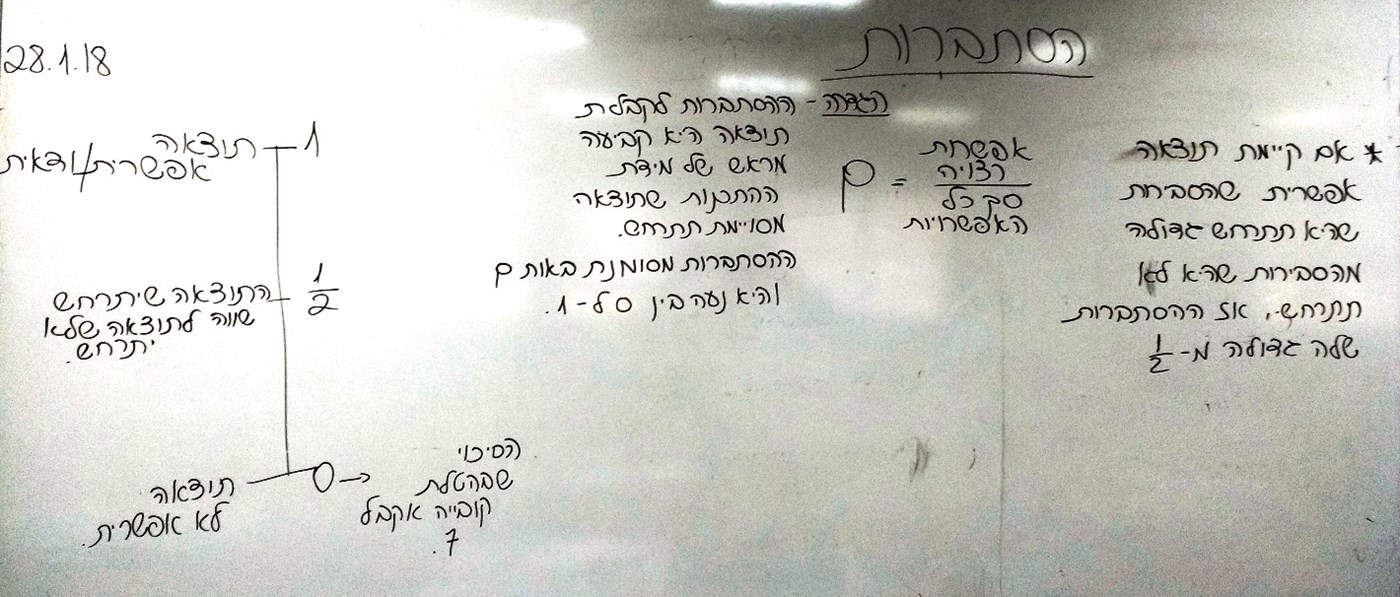 28.1.18
הסתברות
* אם קיימת תוצאה
אפשרית שהסבירות
שהיא תתרחש גדולה
מהסבירות שהיא לא
תתרחש, אז ההסתברות
שלה גדולה מ-1/2
הגדרה - ההסתברות לקבלת
תוצאה היא קביעה
מראש של מידת
ההתכנות שתוצאה
מסויימת תתרחש.
ההסתברות מסומנת באות P
והיא נעה בין 0 ל-1.
P = אפשרות רצויה / סך כל האפשרויות
1
תוצאה
אפשרית/ודאית
1/2
התוצאה שיתרחש
שווה לתוצאה שלא
יתרחש.
0 →
תוצאה
לא אפשרית.
הסיכוי
שבהטלת
קובייה אקבל
7.